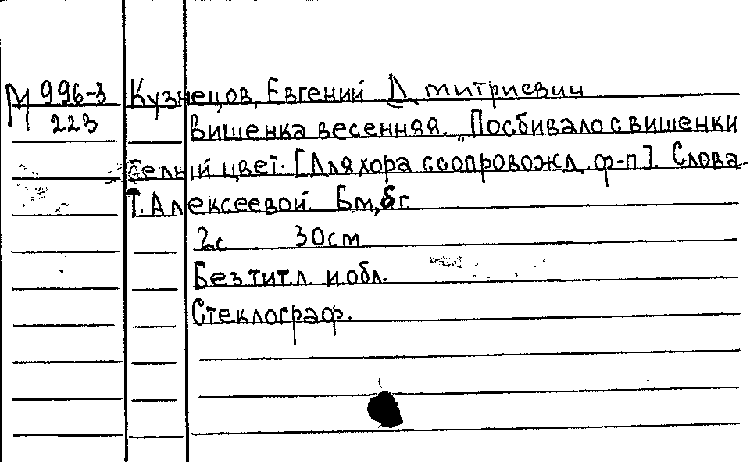 М 996-3 Кузнецов, Евгений Дмитриевич
223 Вишенка весенняя. „Посбивало с вишенки
белый цвет. [Для хора сопровожд. ф-п]. Слова
Т. Алексеевой. Бм, бг.
2с 30см
Без титл. и обл.
Стеклограф.